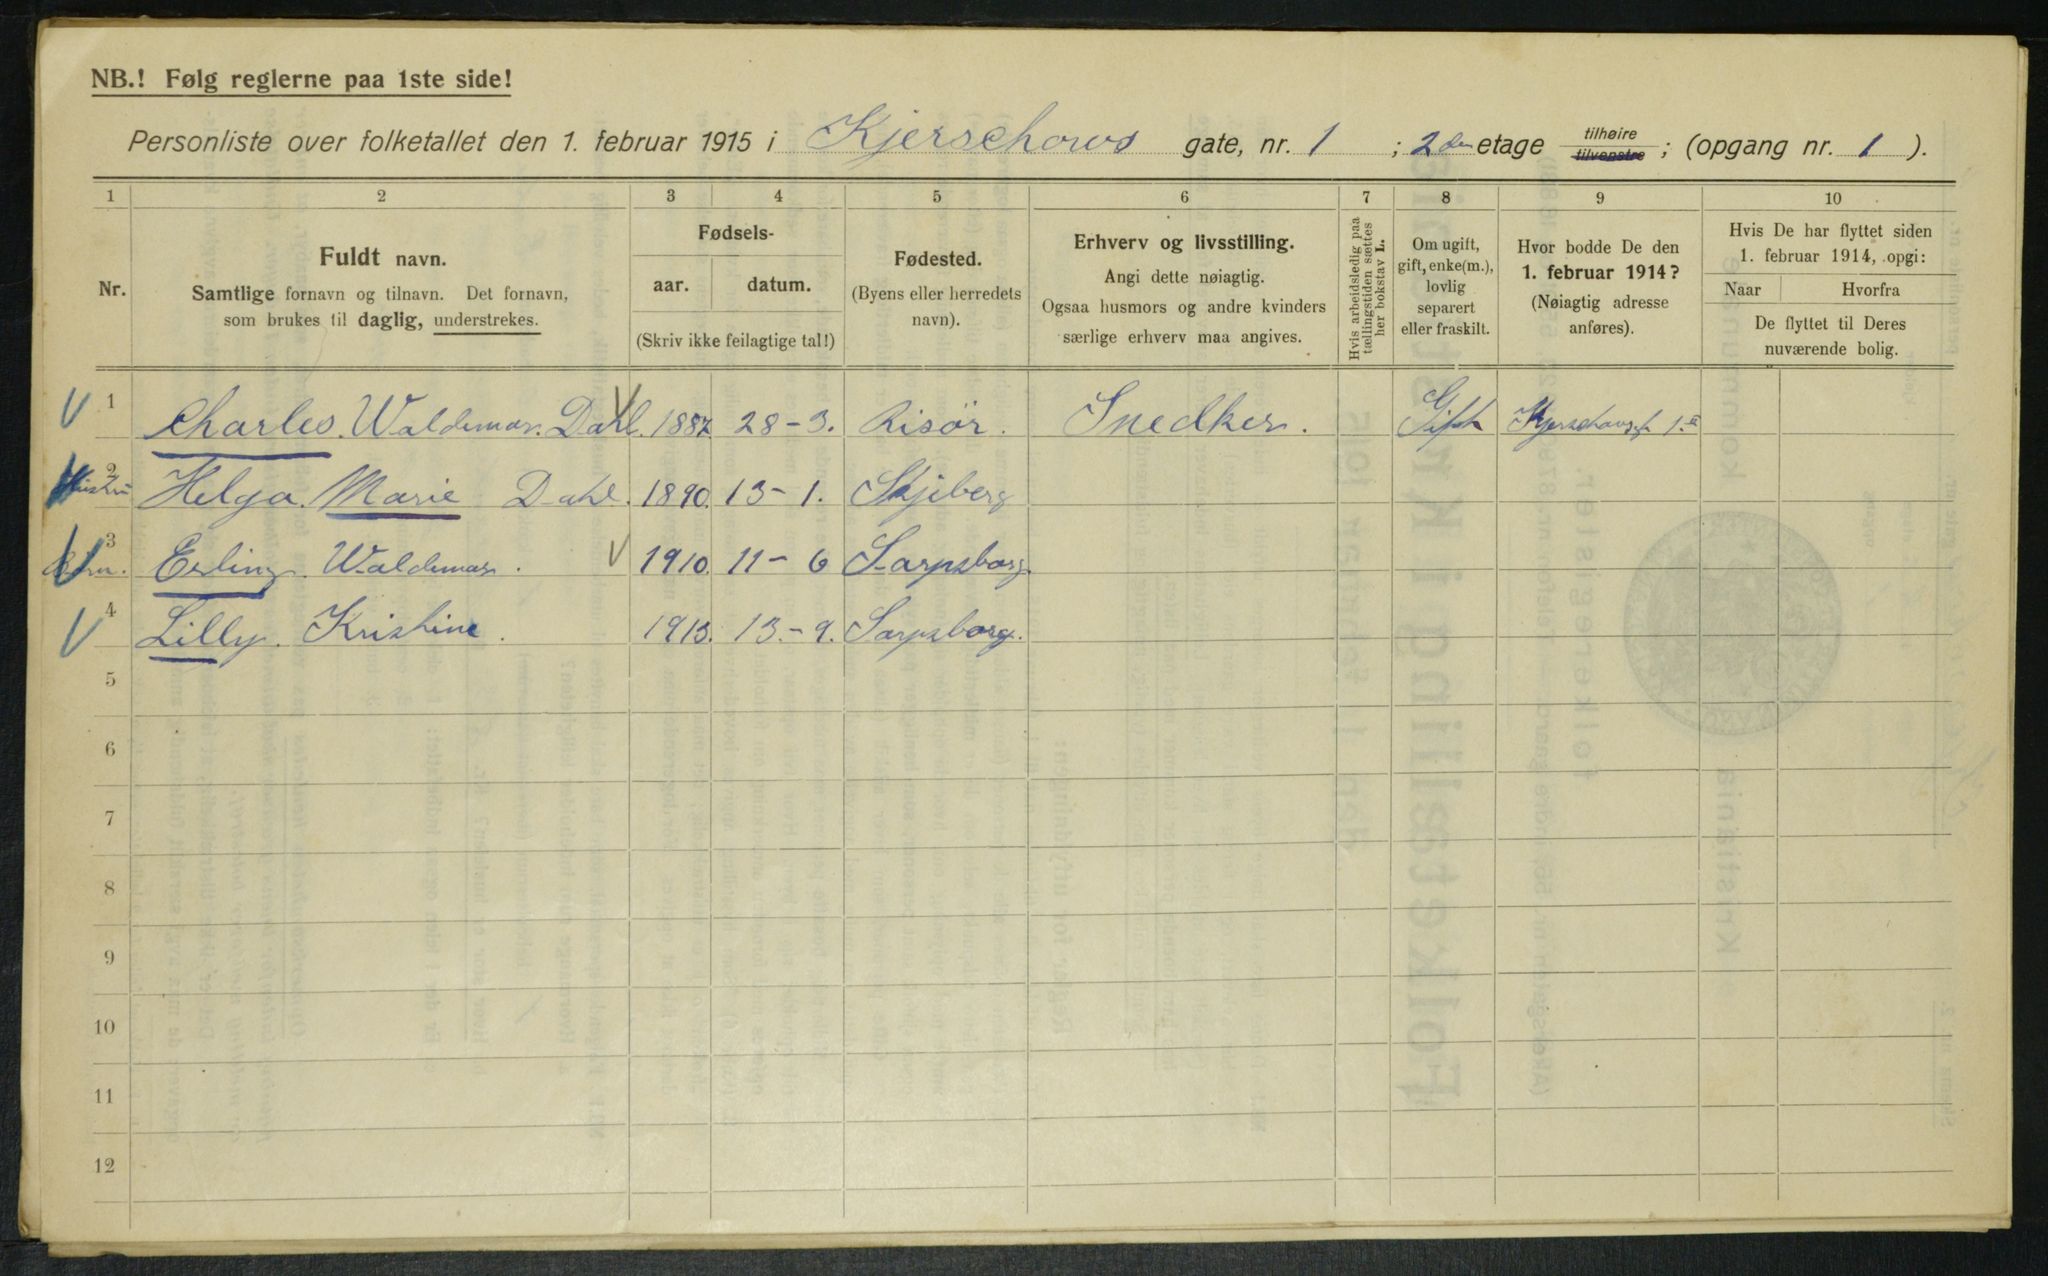 NB.! Følg reglerne paa 1ste side!
Personliste over folketallet den 1. februar 1915 i Kjerschows gate, nr. 1 ; 2den etage tilhøire tilvenstre ; (opgang nr. 1 ).
1 2 3 4 5 6 7 8 9 10
Nr.
Fuldt navn.
Samtlige fornavn og tilnavn. Det fornavn,
som brukes til daglig, understrekes.
Fødsels-
aar. datum.
(Skriv ikke feilagtige tal!)
Fødested.
(Byens eller herredets
navn).
Erhverv og livsstilling.
Angi dette nøiagtig.
Ogsaa husmors og andre kvinders
særlige erhverv maa angives.
Hvis arbeidsledig paa
tællingstiden sættes
her bokstav L.
Om ugift,
gift, enke(m.),
lovlig
separert
eller fraskilt.
Hvor bodde De den
1. februar 1914?
(Nøiagtig adresse
anføres).
Hvis De har flyttet siden
1. februar 1914, opgi:
Naar Hvorfra
De flyttet til Deres
nuværende bolig.
1 Charles. Waldemar. Dahl. 1887 28-3. Risör. Snedker. Gift Kjerschowsgt 1.
2 Hustru Helga. Marie Dahl. 1890. 13-1. Skjeberg
3 Erling. Waldemar. 1910. 11-6 Sarpsborg.
4 Lilly. Kristine. 1913. 13.-9. Sarpsborg.
5
6
7
8
9
10
11
12